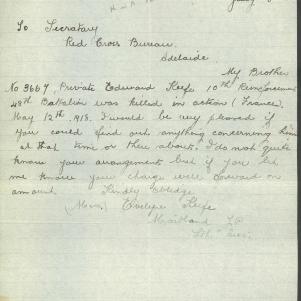 To Secretary
Red Cross Bureau.
Adelaide
My Brother
No 3667, Private Edward Keefe 10th Reinforcement
48th Battalion was killed in action (France).
May 12th 1918. I would be very pleased if
you could find out anything concerning him
at that time or there abouts. I do not quite
know your arrangements but if you let
me know your charge will forward on
amount Kindly Oblige
(Miss) Evelyn Keefe
Maitland